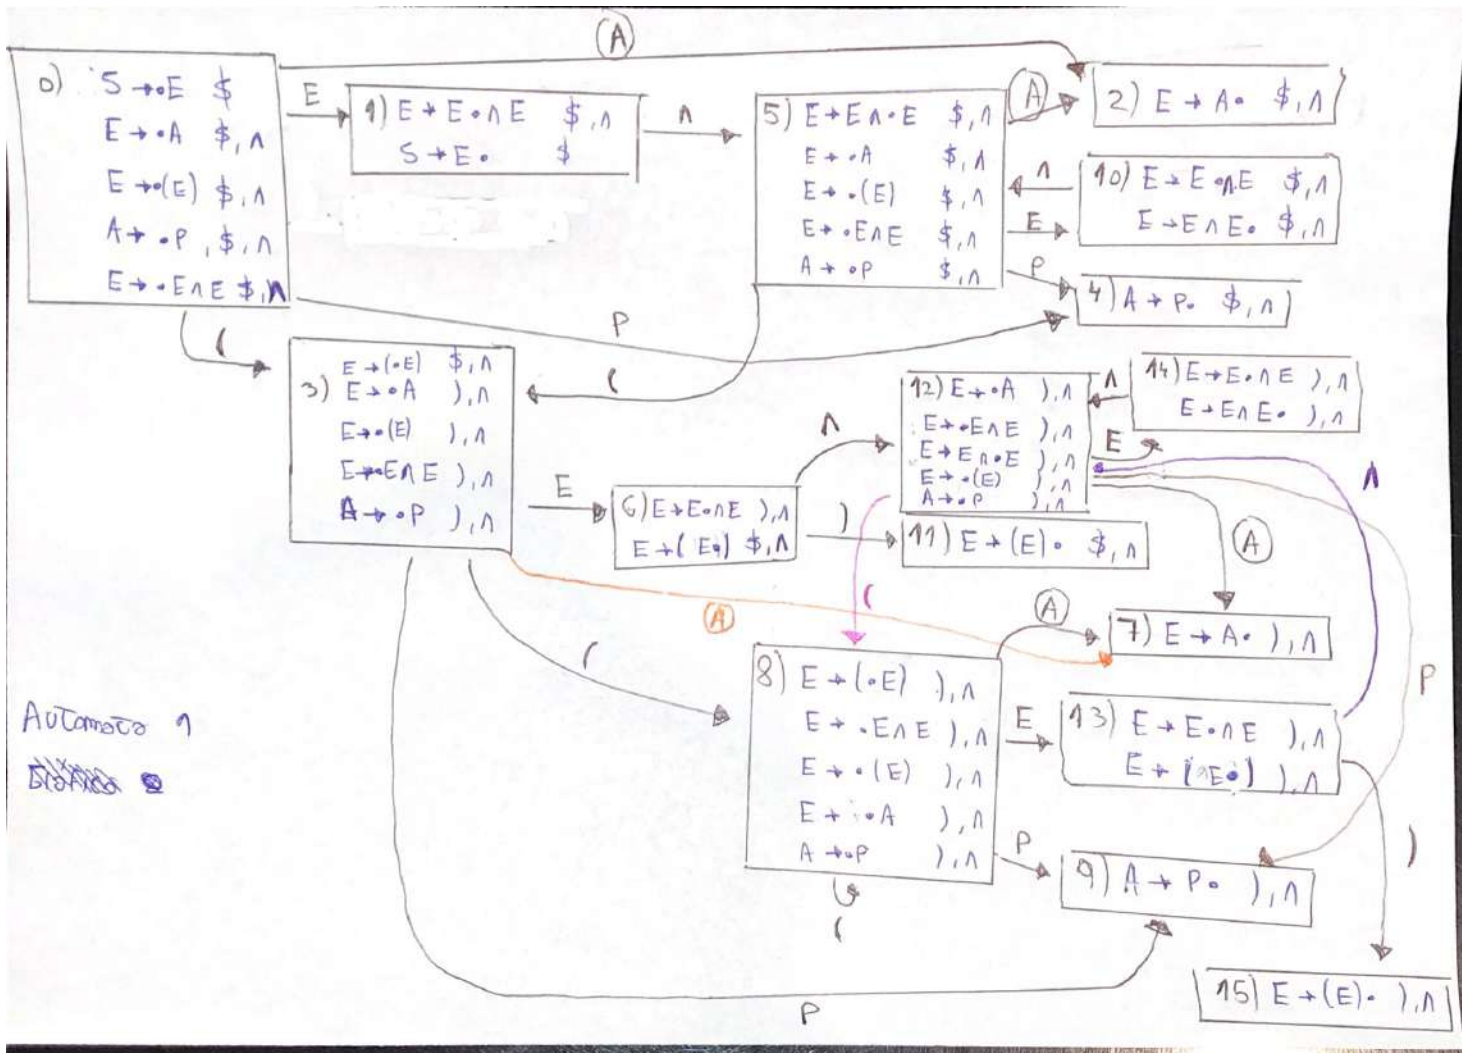 A
0) S → •E $
E → •A $, ∧
E → •(E) $, ∧
A → •P , $, ∧
E → •E∧E $, ∧
E
1) E → E•∧E $, ∧
S → E• $
∧
5) E → E∧•E $, ∧
E → •A $, ∧
E → •(E) $, ∧
E → •E∧E $, ∧
A → •P $, ∧
A
2) E → A• $, ∧
∧
E
10) E → E•∧E $, ∧
E → E∧E• $, ∧
P
4) A → P• $, ∧
P
(
(
3) E → (•E) $, ∧
E → •A ), ∧
E → •(E) ), ∧
E → •E∧E ), ∧
A → •P ), ∧
E
6) E → E•∧E ), ∧
E → (E•) $, ∧
∧
)
12) E → •A ), ∧
E → •E∧E ), ∧
E → E∧•E ), ∧
E → •(E) ), ∧
A → •P ), ∧
∧
E
14) E → E•∧E ), ∧
E → E∧E• ), ∧
11) E → (E)• $, ∧
A
∧
P
(
A
(
A
7) E → A• ), ∧
8) E → (•E) ), ∧
E → •E∧E ), ∧
E → •(E) ), ∧
E → •A ), ∧
A → •P ), ∧
E
13) E → E•∧E ), ∧
E → (E•) ), ∧
P
9) A → P• ), ∧
)
(
P
15) E → (E)• ), ∧
Automata 1